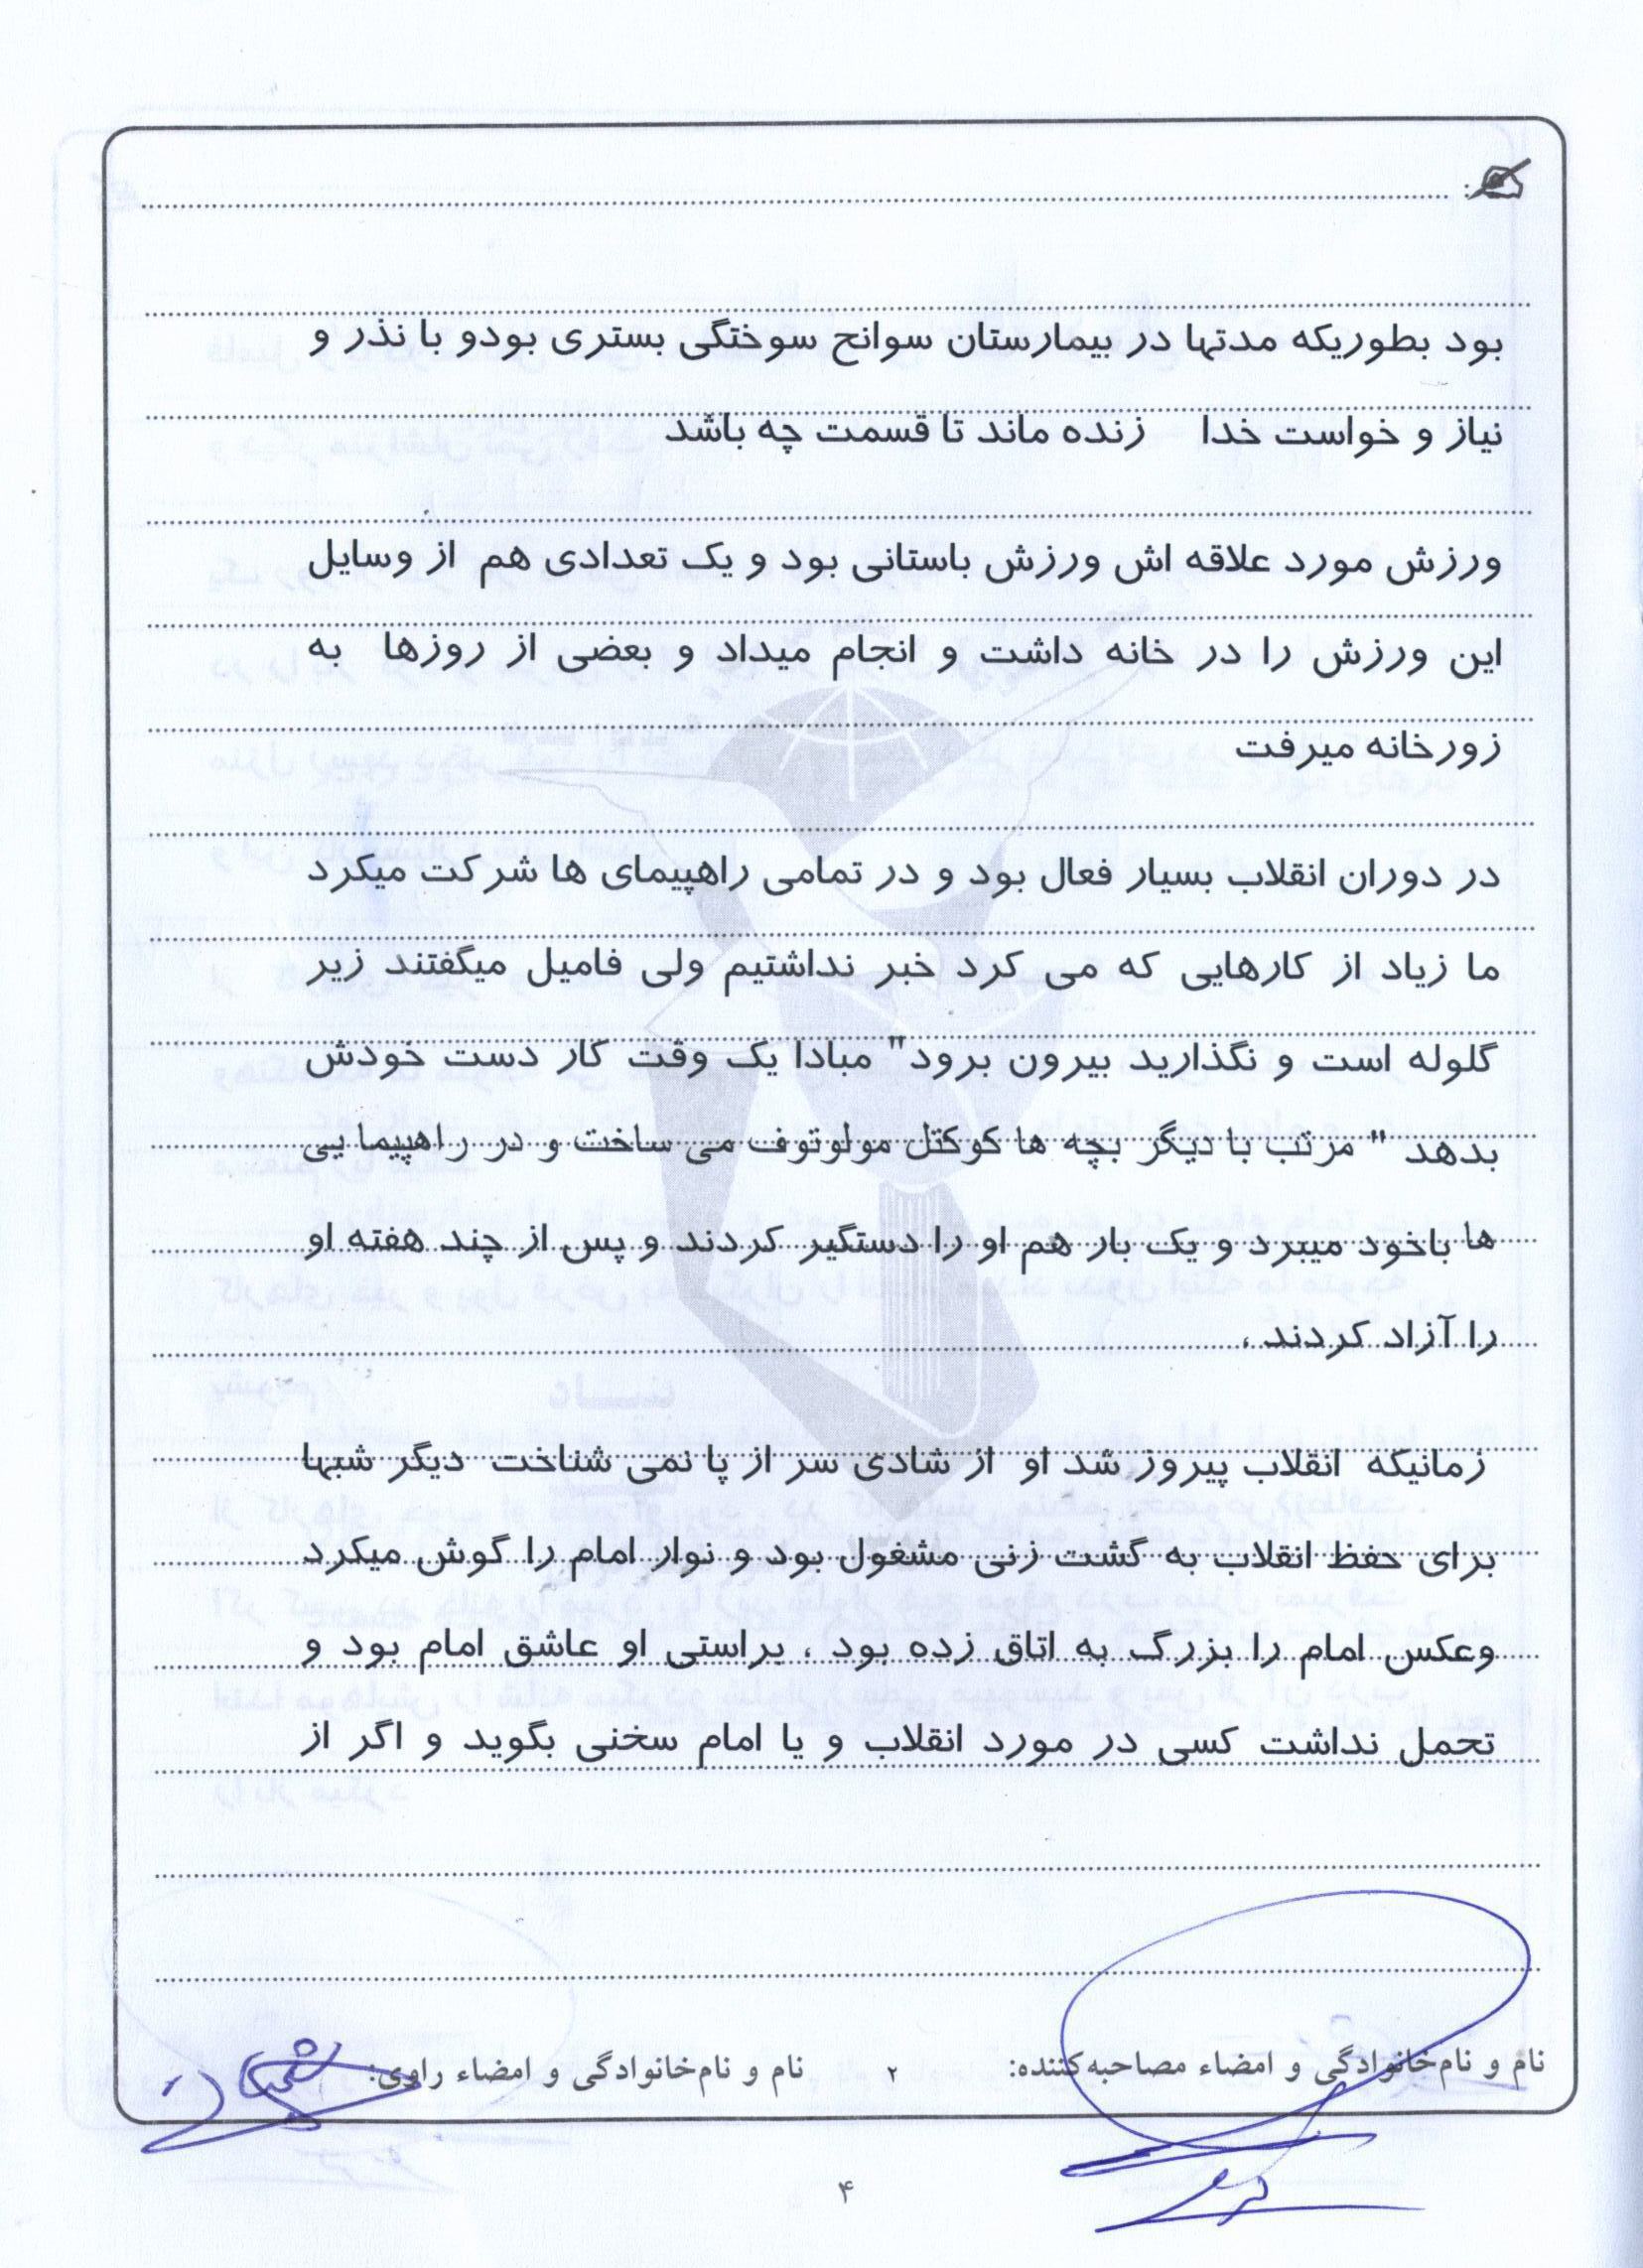 بود بطوریکه مدتها در بیمارستان سوانح سوختگی بستری بودو با نذر و
نیاز و خواست خدا زنده ماند تا قسمت چه باشد
ورزش مورد علاقه اش ورزش باستانی بود و یک تعدادی هم از وسایل
این ورزش را در خانه داشت و انجام میداد و بعضی از روزها به
زورخانه میرفت
در دوران انقلاب بسیار فعال بود و در تمامی راهپیمای ها شرکت میکرد
ما زیاد از کارهایی که می کرد خبر نداشتیم ولی فامیل میگفتند زیر
گلوله است و نگذارید بیرون برود" مبادا یک وقت کار دست خودش
بدهد " مرتب با دیگر بچه ها کوکتل مولوتوف می ساخت و در راهپیمایی
ها باخود میبرد و یک بار هم او را دستگیر کردند و پس از چند هفته او
را آزاد کردند ،
زمانیکه انقلاب پیروز شد او از شادی سر از پا نمی شناخت دیگر شبها
برای حفظ انقلاب به گشت زنی مشغول بود و نوار امام را گوش میکرد
وعکس امام را بزرگ به اتاق زده بود ، براستی او عاشق امام بود و
تحمل نداشت کسی در مورد انقلاب و یا امام سخنی بگوید و اگر از
نام و نام‌خانوادگی و امضاء مصاحبه‌کننده: ۲ نام و نام‌خانوادگی و امضاء راوی:
۴